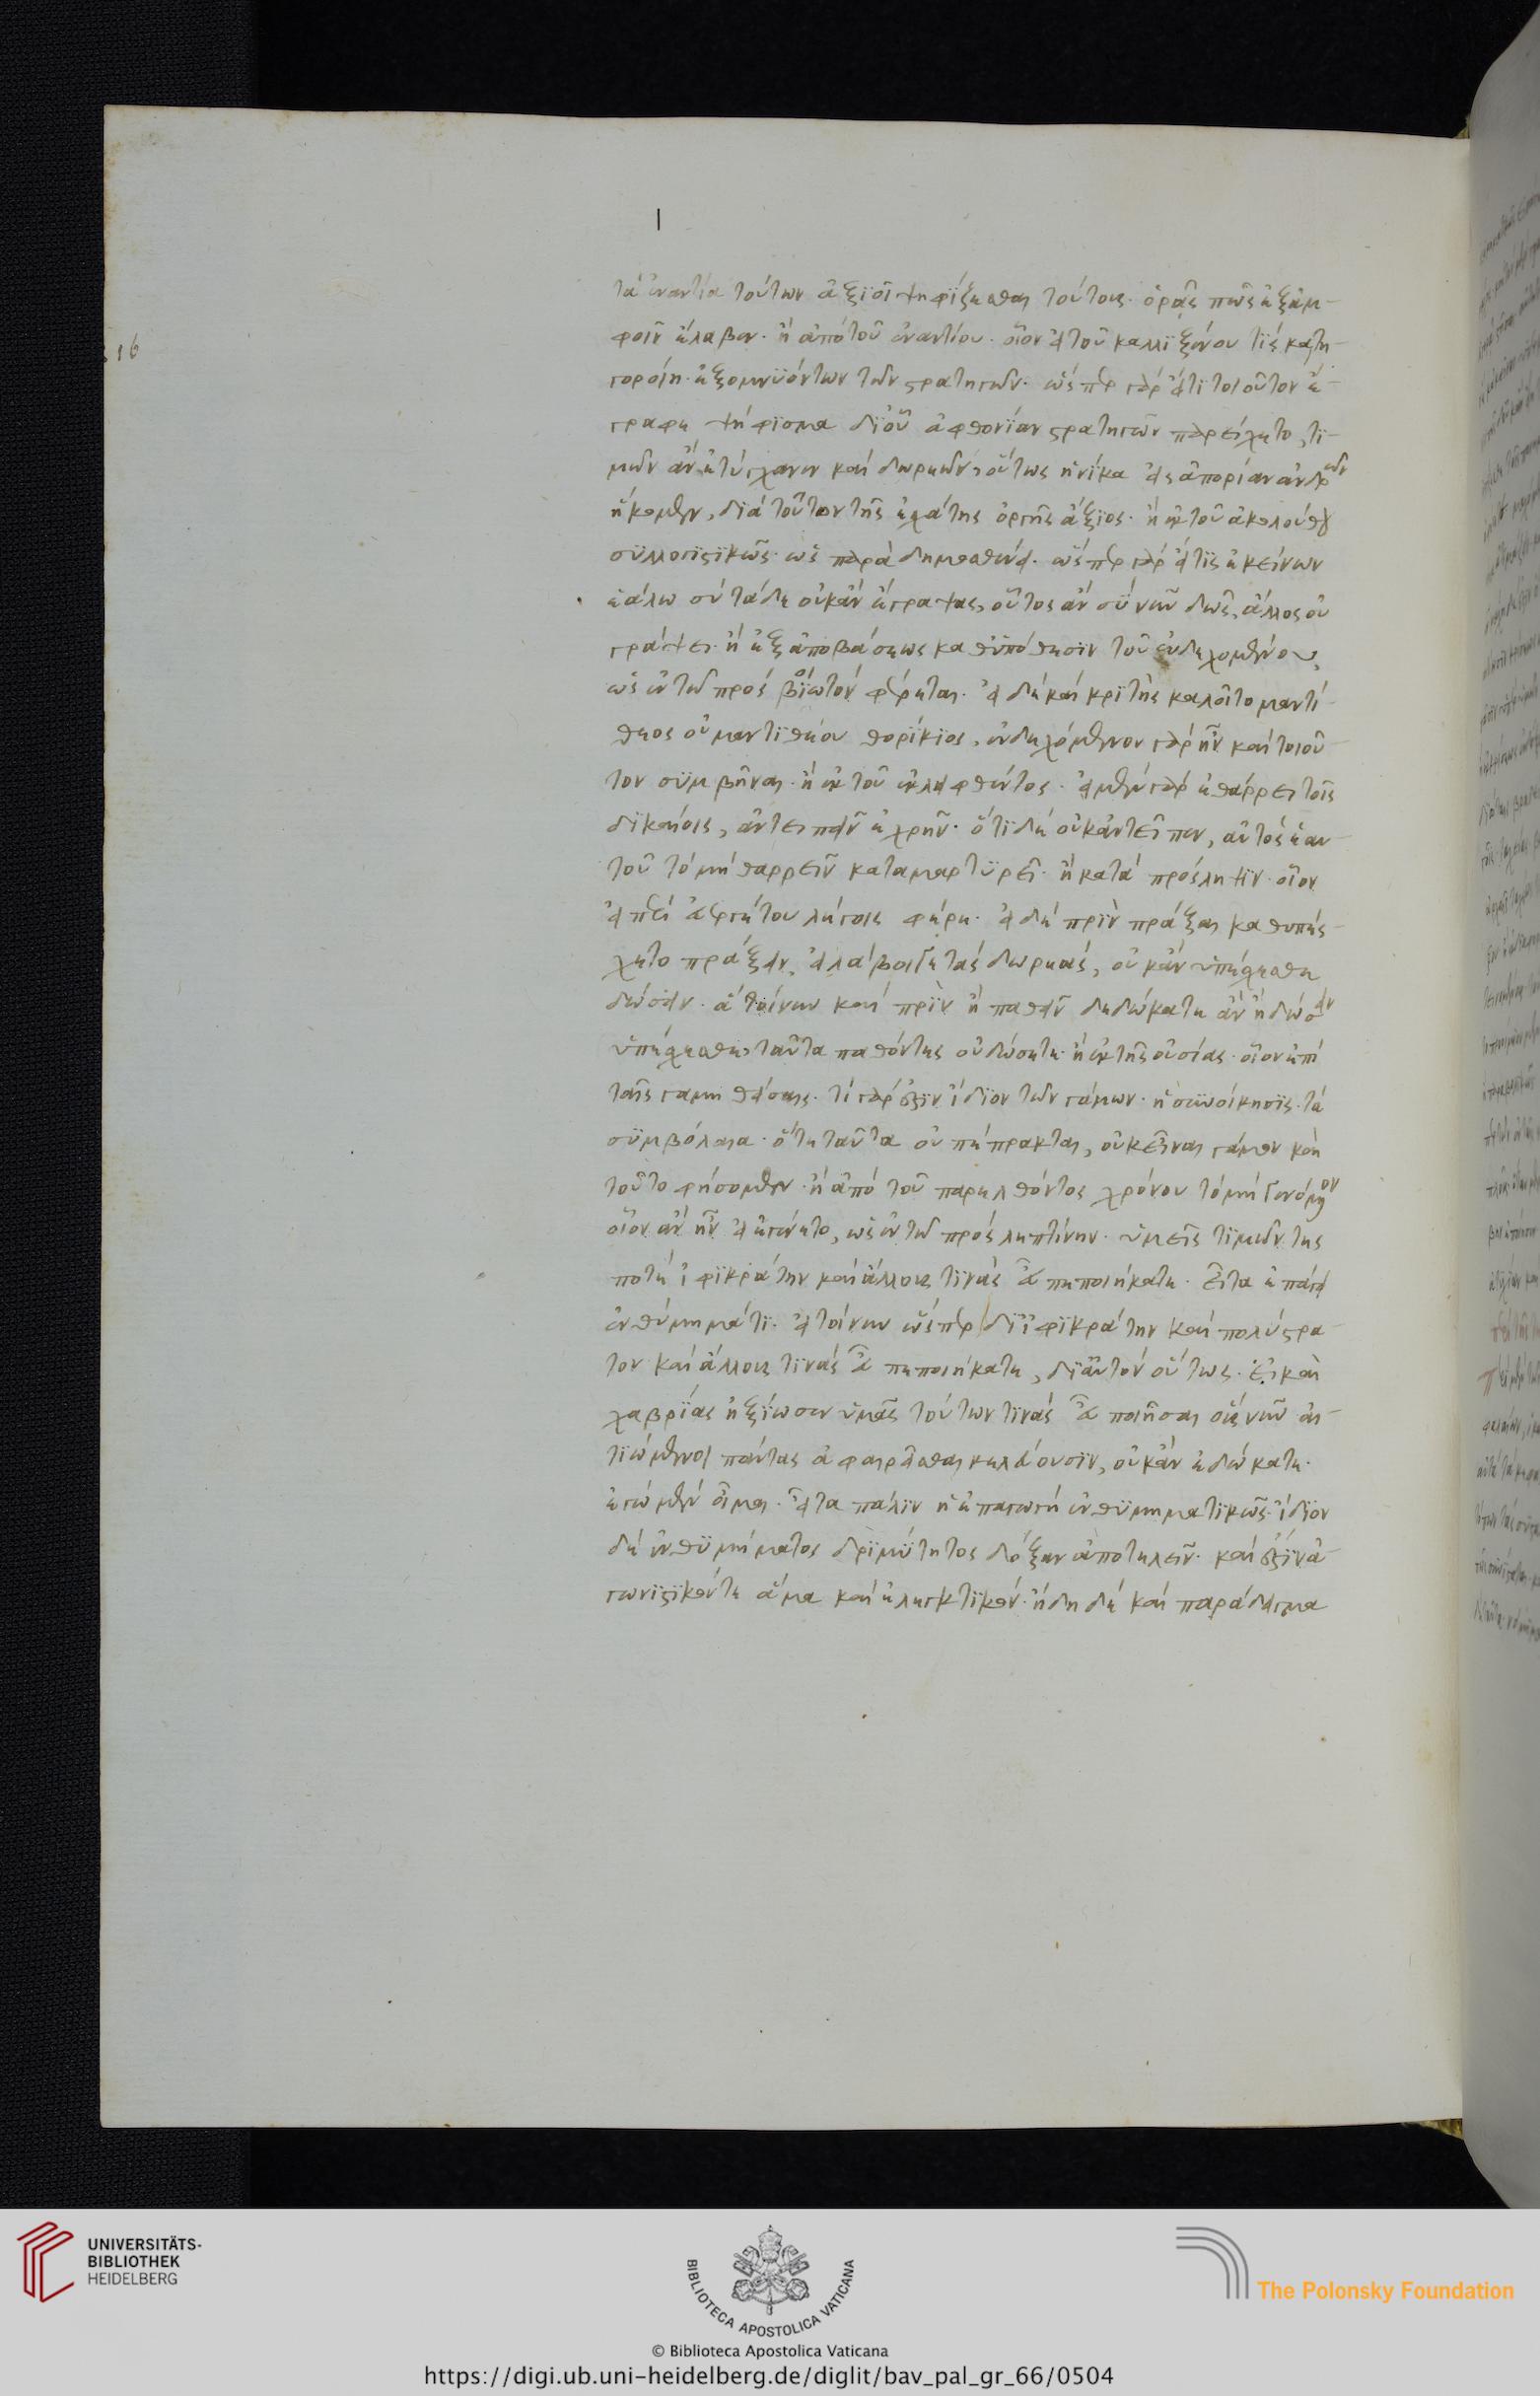 τὰ ἐναντία τούτων ἀξιοῖ ψηφίζεσθαι τούτοις. ὁρᾶς πῶς ἐξ ἀμ-
16
φοῖν ἔλαβεν. ἢ ἀπὸ τοῦ ἐναντίου. οἷον εἰ τοῦ καλλιξένου τὶς κατη-
γοροίη. ἐξομνυόντων τῶν στρατηγῶν. ὥσπερ γὰρ εἴ τι τοιοῦτον ἔ-
γραφε ψήφισμα δι' οὗ ἀφθονίαν στρατηγῶν παρείχετο, τι-
μῶν ἂν ἐτύγχανεν καὶ δωρεῶν, οὕτως ἡνίκα εἰς ἀπορίαν ἀνδρῶν
ἥκομεν, διὰ τοῦτον τῆς ἐσχάτης ὀργῆς ἄξιος. ἢ ἐκ τοῦ ἀκολούθου
συλλογιστικῶς. ὡς παρὰ δημοσθένει. ὥσπερ γὰρ εἴ τις ἐκείνων
ἑάλω σὺ τάδε οὐκ ἂν ἔγραψας, οὕτως ἂν σὺ νῦν δῶς, ἄλλος οὐ
γράψει. ἢ ἐξ ἀποβάσεως καθ' ὑπόθεσιν τοῦ ἐνδεχομένου,
ὡς ἐν τῷ πρὸς βοιωτὸν φέρεται. εἰ δὲ καὶ κριτὴς καλοῖτο μαντί-
θεος οὐ μαντιθέου θορίκιος, ἐνδεχόμενον γὰρ ἦν καὶ τοιοῦ-
τον συμβῆναι. ἢ ἐκ τοῦ ἐκλειφθέντος. εἰ μὲν γὰρ ἐθάρρει τοῖς
δικαίοις, ἀντειπεῖν ἐχρῆν. ὅτι δὲ οὐκ ἀντεῖπεν, αὐτὸς ἑαυ-
τοῦ τὸ μὴ θαρρεῖν καταμαρτυρεῖ. ἢ κατὰ πρόσληψιν. οἷον
εἰ περὶ ἀεργήτου λέγοις φέρε. εἰ δὲ πρὶν πρᾶξαι καθυπέσ-
χετο πράξειν, εἰ λάβοι γε τὰς δωρεάς, οὐκ ἂν ὑπέσχεσθε
δώσειν. ἃ τοίνυν καὶ πρὶν ἢ παθεῖν δεδώκατε ἂν ἢ δώσειν
ὑπέσχεσθε, ταῦτα παθόντες οὐ δώσετε. ἢ ἐκ τῆς οὐσίας. οἷον ἐπὶ
ταῖς γαμηθείσαις. τί γάρ ἐστιν ἴδιον τῶν γάμων. ἡ συνοίκησις. τὰ
συμβόλαια. ὅτε ταῦτα οὐ πέπρακται, οὐκ εἶναι γάμον καὶ
τοῦτο φήσομεν. ἢ ἀπὸ τοῦ παρελθόντος χρόνου τὸ μὴ γενόμενον
οἷον ἂν ἦν εἰ ἐγένετο, ὡς ἐν τῷ πρὸς λεπτίνην. ὑμεῖς τιμῶντες
ποτὲ ἰφικράτην καὶ ἄλλους τινὰς εὖ πεποιήκατε. εἶτα ἐπάγει
ἐνθύμημά τι. εἰ τοίνυν ὥσπερ δι' ἰφικράτην καὶ πολύστρα-
τον καὶ ἄλλους τινὰς εὖ πεποιήκατε, δι' αὐτὸν οὕτως. εἰ καὶ
χαβρίας ἠξίωσεν ὑμᾶς τούτων τινὰς εὖ ποιῆσαι οὓς νῦν αἰ-
τιώμενοι πάντας ἀφαιρεῖσθαι κελεύουσιν, οὐκ ἂν ἐδώκατε.
ἐγὼ μὲν οἶμαι. εἶτα πάλιν ἡ ἐπαγωγὴ ἐνθυμηματικῶς. ἴδιον
δὲ ἐνθυμήματος δριμύτητος δόξαν ἀποτελεῖν. καὶ ἔστιν ἀ-
γωνιστικόν τε ἅμα καὶ ἐλεγκτικόν. ἤδη δὲ καὶ παράδειγμα
UNIVERSITÄTS-
BIBLIOTHEK
HEIDELBERG
BIBLIOTECA APOSTOLICA VATICANA
The Polonsky Foundation
© Biblioteca Apostolica Vaticana
https://digi.ub.uni-heidelberg.de/diglit/bav_pal_gr_66/0504